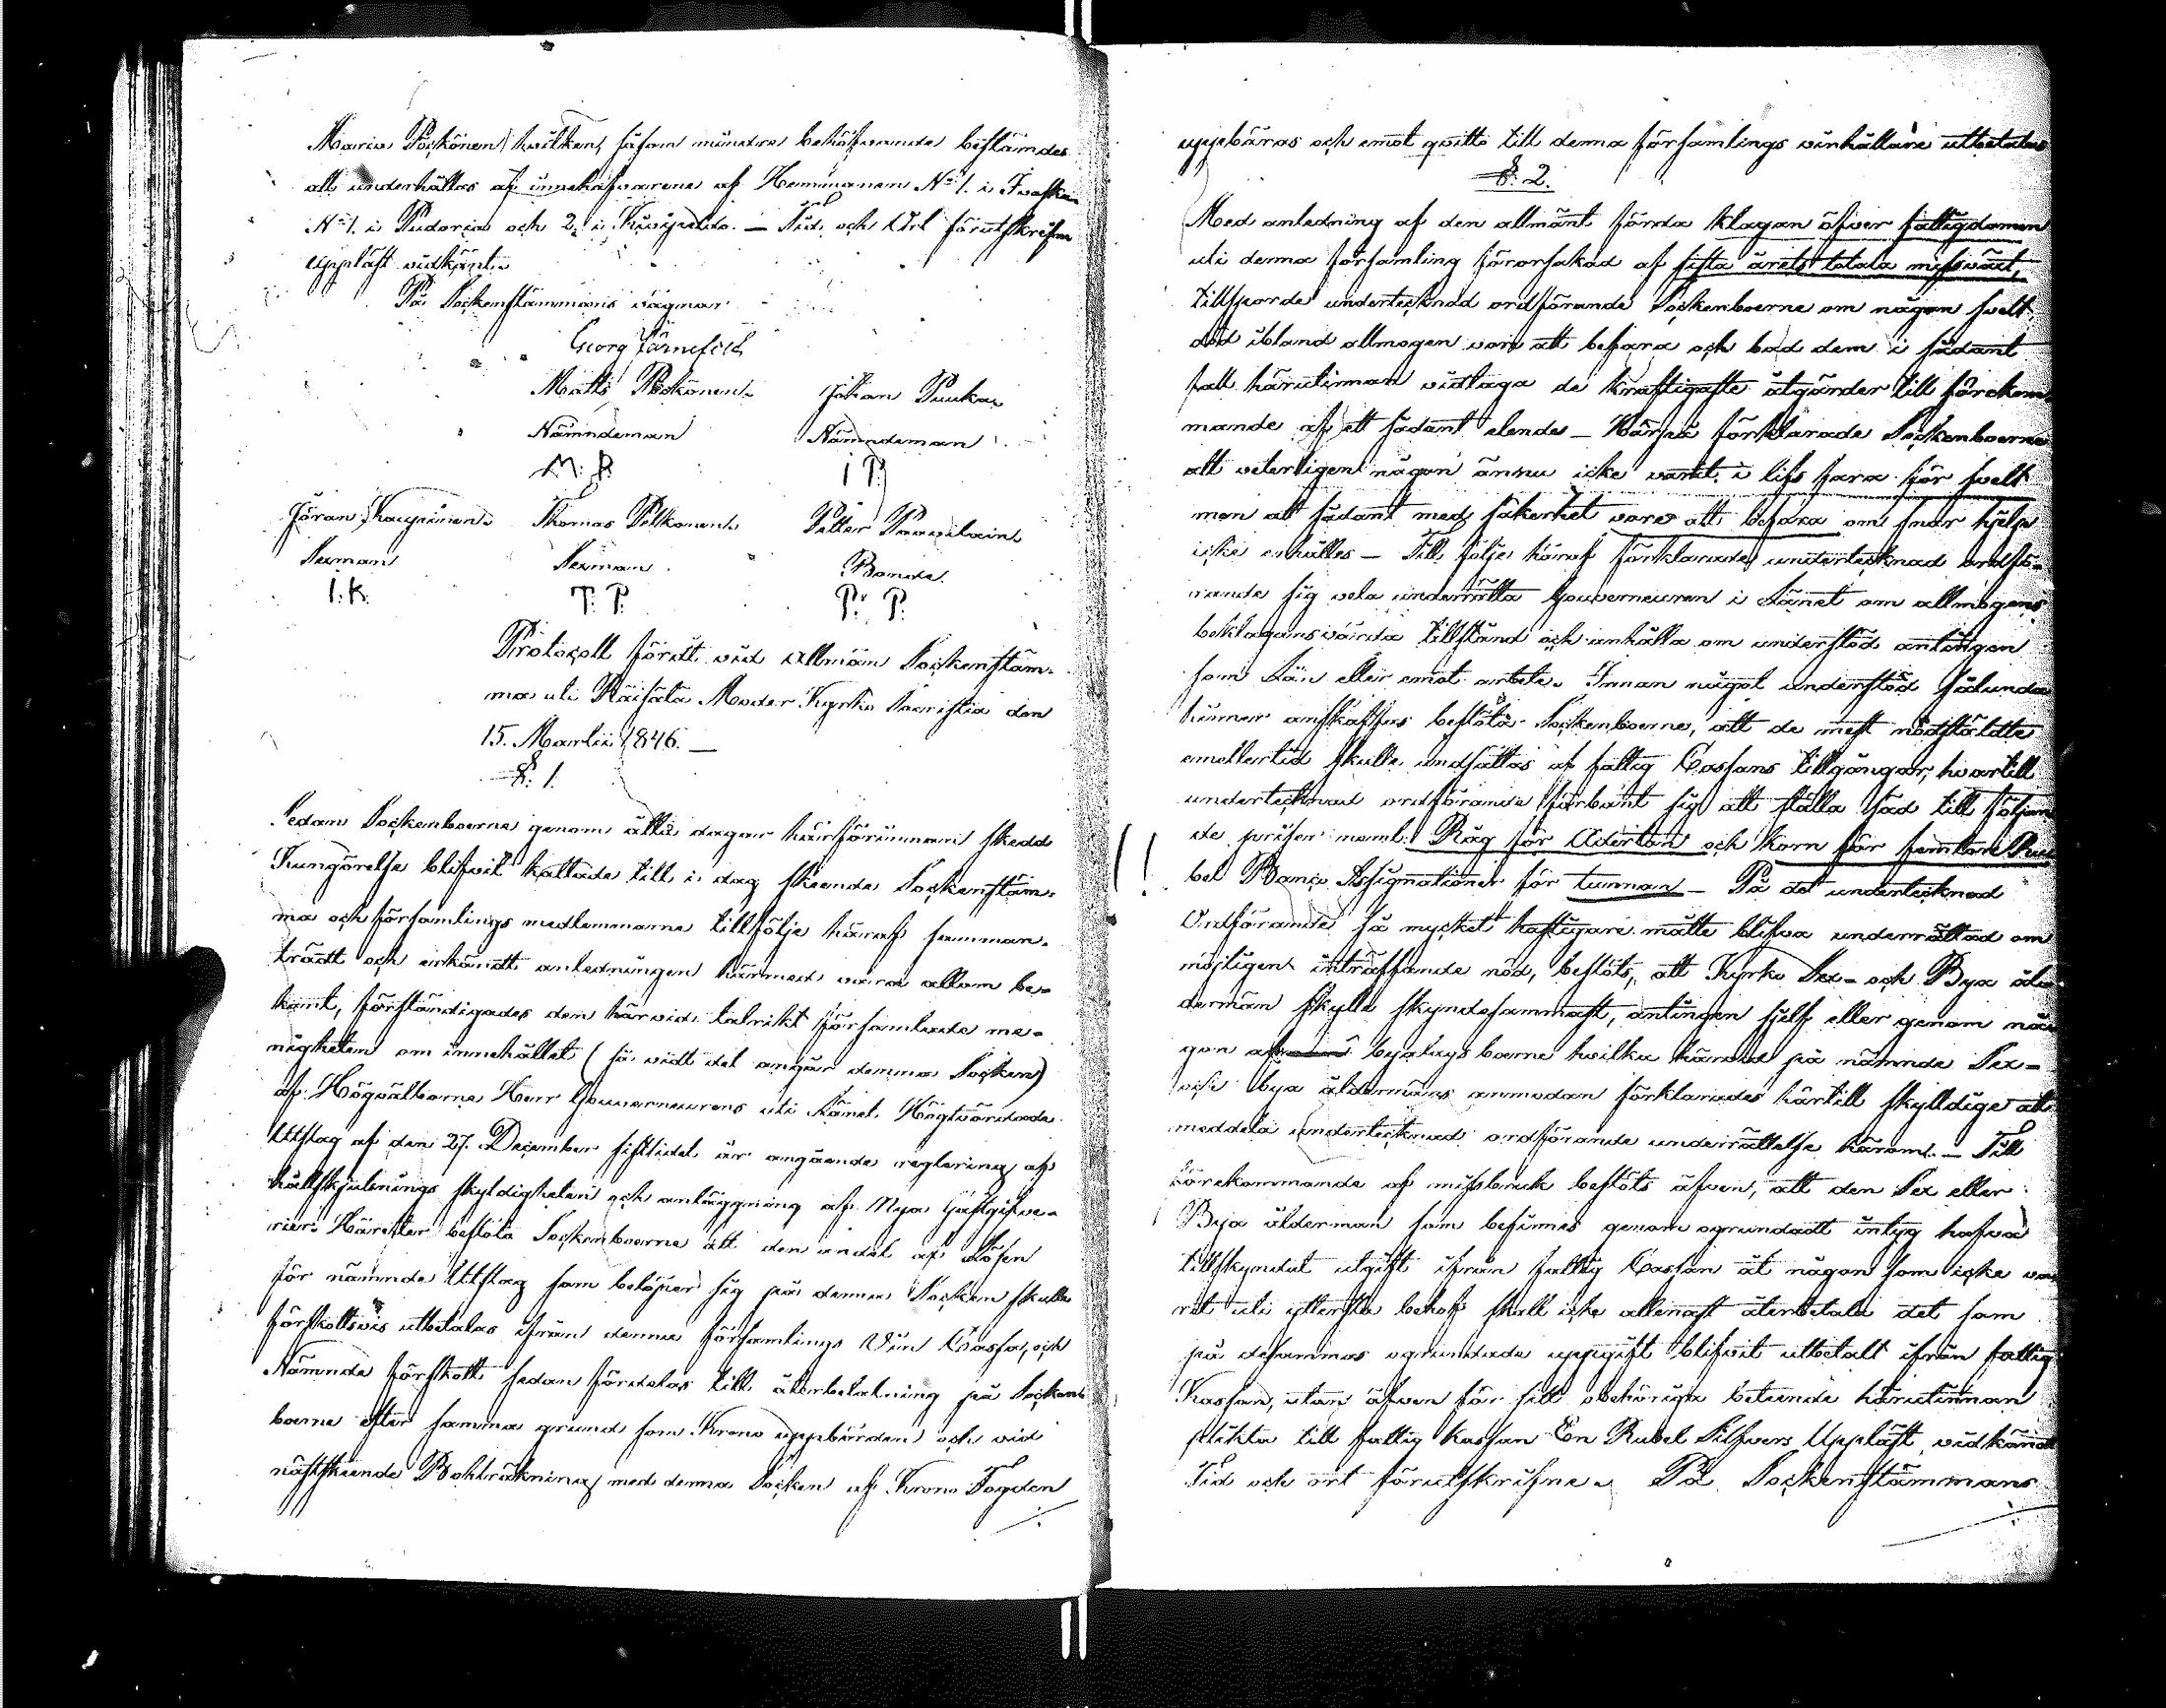 Maria Pöckönen, hvilken, såsom mindre behöfvande bestämdes
att underhållas af innehafvarene af Hemmanen No 1. i Ivaska
No 1. i Pudoria och 2. i Kuoppala. — Tid och Ort förutskrifne
Uppläst vidkänt.
På Sockenstämmans vägnar
Georg Järnefelt
Matts Pöckönen. Johan Puukka
Nämndeman Nämndeman
M. P. I P.
Jöran Kaupinen. Thomas Pelkonen. Petter Paavilain
Sexman Sexman Bonde.
I. K. T. P. P. P.
Protocoll fördt vid allmän Sockenstäm-
ma uti Räisälä Moder Kyrko Sacristia den
15. Martii 1846. —
§. 1.
Sedan Sockenboerne genom åtta dagar härförinnan skedd
Kungörelse blifvit kallade till i dag skeende Sockenstäm-
ma och församlings medlemmarne tillfölje häraf samman-
trädt och erkändt anledningen härmed vara allom be-
kant, förständigades den härvid talrikt församlade me-
nigheten om innehållet (så vidt det angår denna Socken)
af Högvälborne Herr Gouverneurens uti Länet Högtvördade
Utslag af den 27. December sistlidet år angående reglering af
hållskjutnings skyldigheten och anläggning af Nya Gästgifve-
rier. Härefter beslöto Sockenboerne att den andel af Lösen
för nämnde Utslag som belöper sig på denna Socken skulle
förskottsvis utbetalas ifrån denna församlings Vin Cassa, och
Nämnde förskott sedan fördelas till återbetalning på Socken-
boerne efter samma grund som Krono uppbörden och vid
nästskeende Bohlräkning med denna Socken af Krono Fogden
uppbäras och emot qvitto till denna församlings vinhållare utbetalas
§. 2.
Med anledning af den allmänt förda klagan öfver fattigdomen
uti denna församling förorsakad af sista årets totala missväxt,
tillsporde undertecknad ordförande Sockenboerne om någon svält
död ibland allmogen vore att befara och bad dem i sådant
fall härutinnan vidtaga de kraftigaste åtgärder till förekom-
mande af ett sådant elende — Härpå förklarade Sockenboerne
att veterligen någon ännu icke varit i lifs fara för svält
men att sådant med säkerhet vore att befara om snar hjelp
icke erhålles — Till följe häraf förklarade undertecknad ordfö-
rande sig vela underrätta Gouverneuren i Länet om allmogens
beklagansvärda tillstånd och anhålla om understöd antingen
som Lån eller emot arbete. Innan något understöd sålunda
hinner anskaffas beslöto Sockenboerne, att de mest nödstäldte
emellertid skulle undsättas af fattig Cassans tillgångar, hvartill
undertecknad ordförande förbant sig att ställa säd till följan
de priser neml. Råg för Aderton och Korn för femton Ru
bel Banco Assignationer för tunnan — På det undertecknad
Ordförande så mycket hastigare måtte blifva underrättad om
möjligen inträffande nöd, beslöts, att Kyrko Sex- och Bya ål-
dermän skulle skyndesammast, antingen sjelf eller genom nå
gon af byalagsboerne hvilka härtill på nämnde Sex-
och bya åldermäns anmodan förklarades härtill skylldige att
meddela undertecknad ordförande underrättelse härom. — Till
förekommande af missbruk beslöts äfven, att den Sex eller
Bya ålderman som befinnes genom ogrundadt intyg hafva
tillskyndat utgift ifrån fattig Cassan åt någon som icke va
rit uti yttersta behof skall icke allenast återbetala det som
på desammas ogrundade uppgift blifvit utbetalt ifrån fattig
Kassan, utan äfven för sitt obehöriga beteende härutinnan
plikta till fattig kassan En Rubel Silfver. Uppläst vidkändt
Tid och ort förutskrifne. På Sockenstämmans